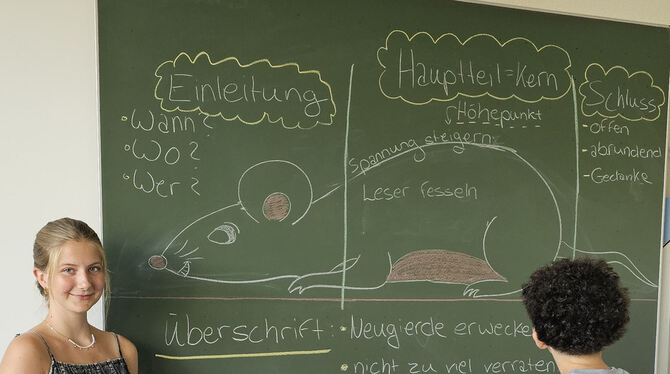 Einleitung
• Wann?
• Wo?
• Wer?
Hauptteil = Kern
Höhepunkt
Spannung steigern
Leser fesseln
Schluss
- offen
- abrundend
- Gedanke
Überschrift: • Neugierde erwecken
• nicht zu viel verraten